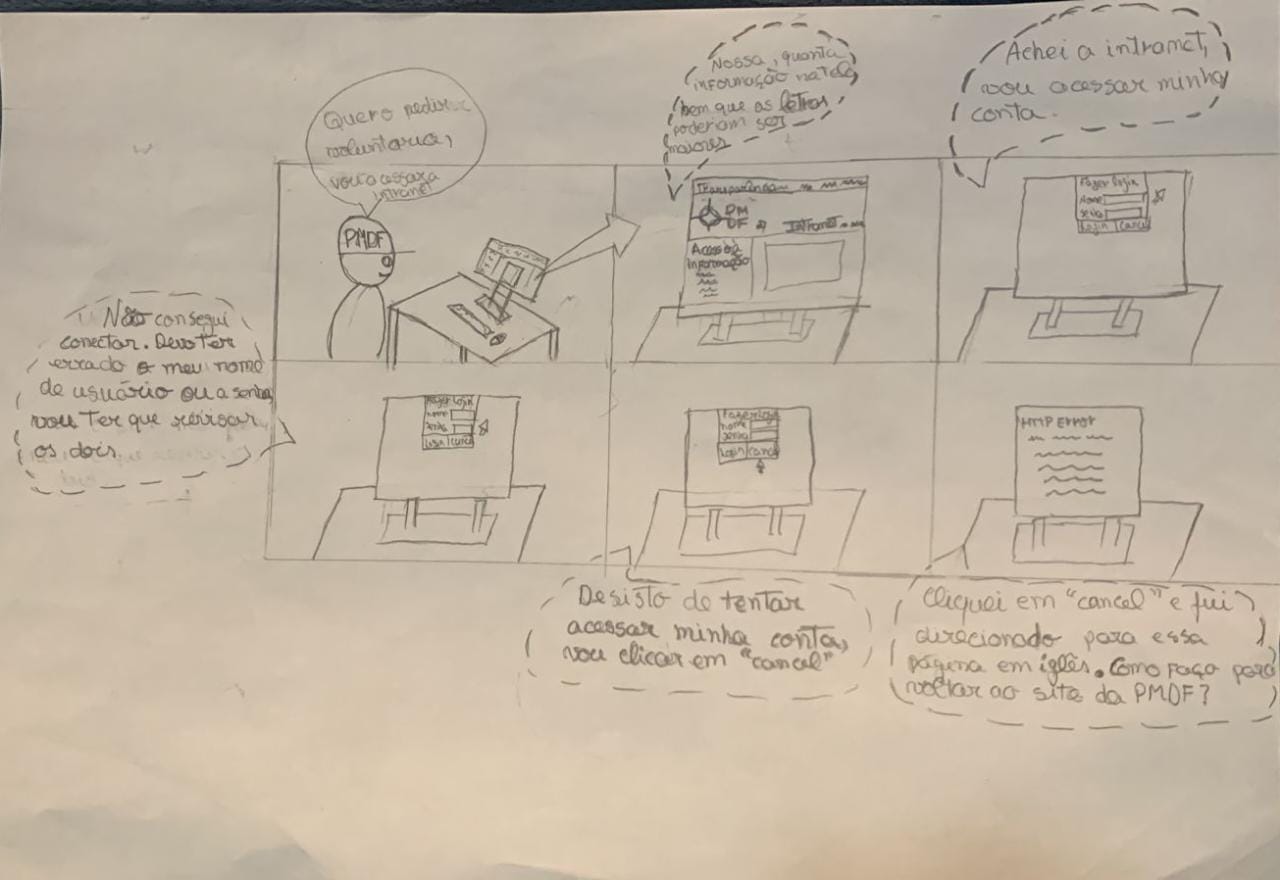 Quero pedir
voluntario,
vou acessar a
intranet
PMDF
Nossa, quanta
informação na tela,
bem que as letras
poderiam ser
maiores
Transparência
PM
DF
Intranet
Acesso à
Informação
Achei a intranet,
vou acessar minha
conta.
Fazer login
Nome
senha
Login Cancel
Não consegui
conectar. Devo ter
errado o meu nome
de usuário ou a senha
vou ter que revisar
os dois.
Fazer login
nome
senha
Login Cancel
Fazer login
nome
senha
Login Cancel
Desisto de tentar
acessar minha conta,
vou clicar em "cancel"
HTTP Error
Cliquei em "cancel" e fui
direcionado para essa
página em iglês. Como faço para
voltar ao site da PMDF?